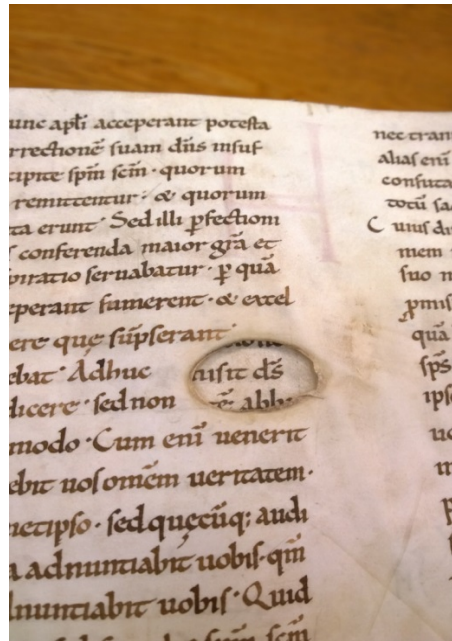 unc apłi acceperant potesta
rrectionē suam dñs insuf
cipite spm̄ scm̄ · quorum
remittentur · & quorum
ta erunt · Sed illi ꝑfectiom
conferenda maior gr̄a et
piratio seruabatur · ꝑ quā
eperant sumerent · & excel
ere que sūpserant ·
ebat · Adhuc
uisit ds̄
dicere · sed non
modo · Cum enī uenerit
ebit uos omēm ueritatem ·
metipso · sed quęcūq; audi
a adnuntiabit uobis · qm̄
dnuntiabit uobis · Quid
spm̄ scm̄
nec tran
alias enī
confuta
totū sa
Cuius di
mem
suo
ꝓmis
quā
sps̄
ips